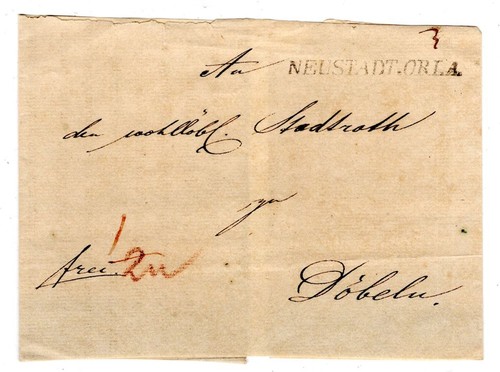 An NEUSTADT.ORLA
den wohllöbl. Stadtrath
zu
frei.
Döbeln.